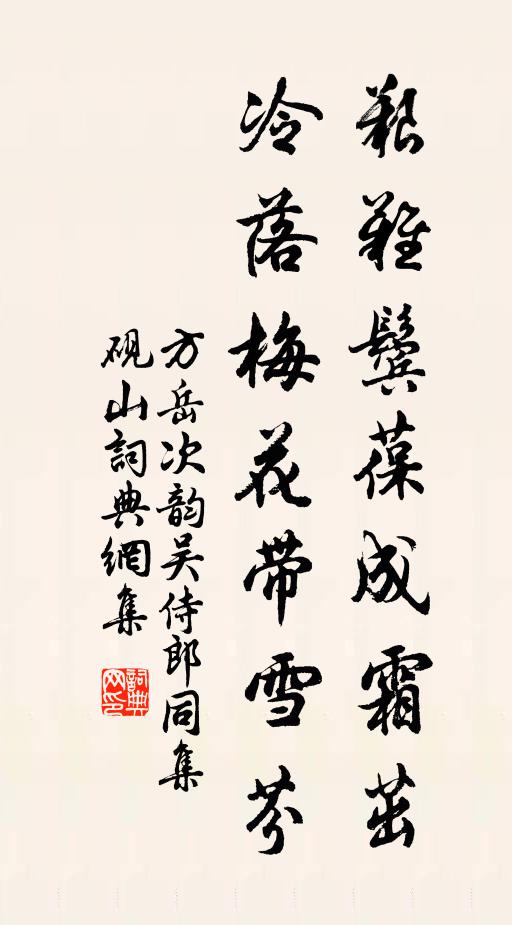 艱難鬢葆成霜茁
冷落梅花帶雪芬
方岳次韵吴侍郎同集
砚山詞典網集
詞典网印